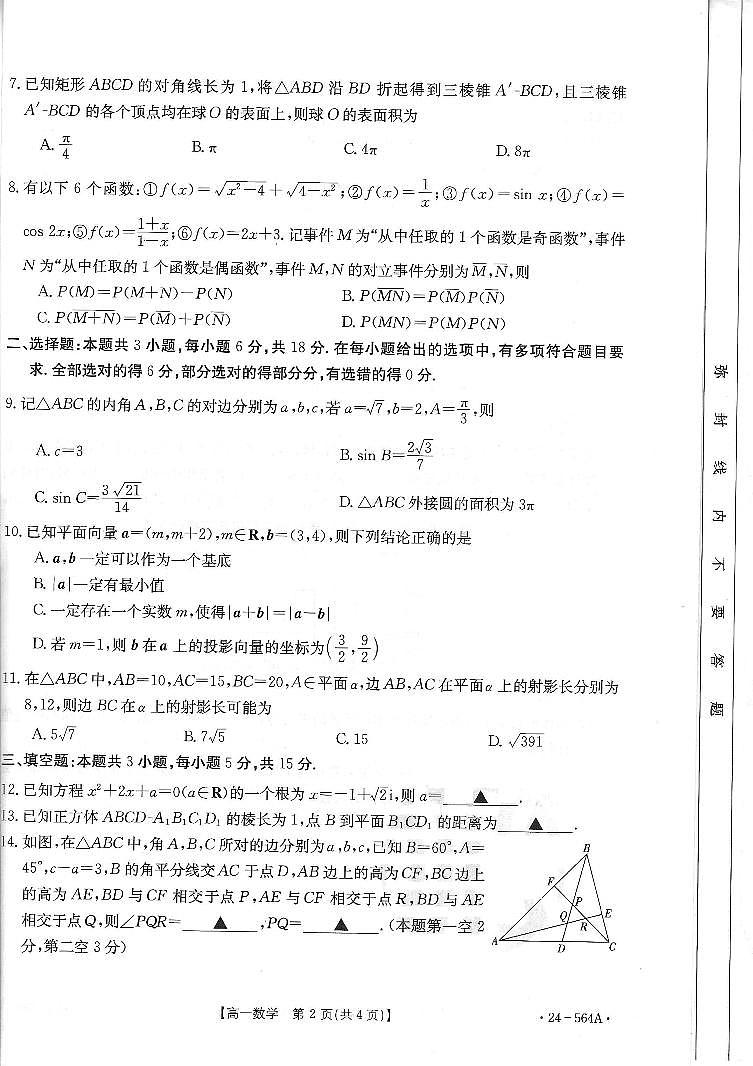 7.已知矩形ABCD的对角线长为1,将△ABD沿BD折起得到三棱锥A′-BCD,且三棱锥
A′-BCD的各个顶点均在球O的表面上,则球O的表面积为
A.π/4 B.π C.4π D.8π
8.有以下6个函数:①f(x)=√(x²-4)+√(4-x²);②f(x)=1/x;③f(x)=sin x;④f(x)=
cos 2x;⑤f(x)=(1+x)/(1-x);⑥f(x)=2x+3.记事件M为“从中任取的1个函数是奇函数”,事件
N为“从中任取的1个函数是偶函数”,事件M,N的对立事件分别为M̅,N̅,则
A.P(M)=P(M+N)-P(N) B.P(M̅N̅)=P(M̅)P(N̅)
C.P(M̅+N̅)=P(M̅)+P(N̅) D.P(MN)=P(M)P(N)
二、选择题:本题共3小题,每小题6分,共18分.在每小题给出的选项中,有多项符合题目要
求.全部选对的得6分,部分选对的得部分分,有选错的得0分.
9.记△ABC的内角A,B,C的对边分别为a,b,c,若a=√7,b=2,A=π/3,则
A.c=3 B.sin B=2√3/7
C.sin C=3√21/14 D.△ABC外接圆的面积为3π
10.已知平面向量a=(m,m+2),m∈R,b=(3,4),则下列结论正确的是
A.a,b一定可以作为一个基底
B.|a|一定有最小值
C.一定存在一个实数m,使得|a+b|=|a-b|
D.若m=1,则b在a上的投影向量的坐标为(3/2,9/2)
11.在△ABC中,AB=10,AC=15,BC=20,A∈平面α,边AB,AC在平面α上的射影长分别为
8,12,则边BC在α上的射影长可能为
A.5√7 B.7√5 C.15 D.√391
三、填空题:本题共3小题,每小题5分,共15分.
12.已知方程x²+2x+a=0(a∈R)的一个根为x=-1+√2i,则a=▲.
13.已知正方体ABCD-A₁B₁C₁D₁的棱长为1,点B到平面B₁CD₁的距离为▲.
14.如图,在△ABC中,角A,B,C所对的边分别为a,b,c,已知B=60°,A=
45°,c-a=3,B的角平分线交AC于点D,AB边上的高为CF,BC边上
的高为AE,BD与CF相交于点P,AE与CF相交于点R,BD与AE
相交于点Q,则∠PQR=▲,PQ=▲.(本题第一空2
分,第二空3分)
B
F
P
Q
R
E
A
D
C
【高一数学 第2页(共4页)】
·24-564A·
弥封线内不要答题